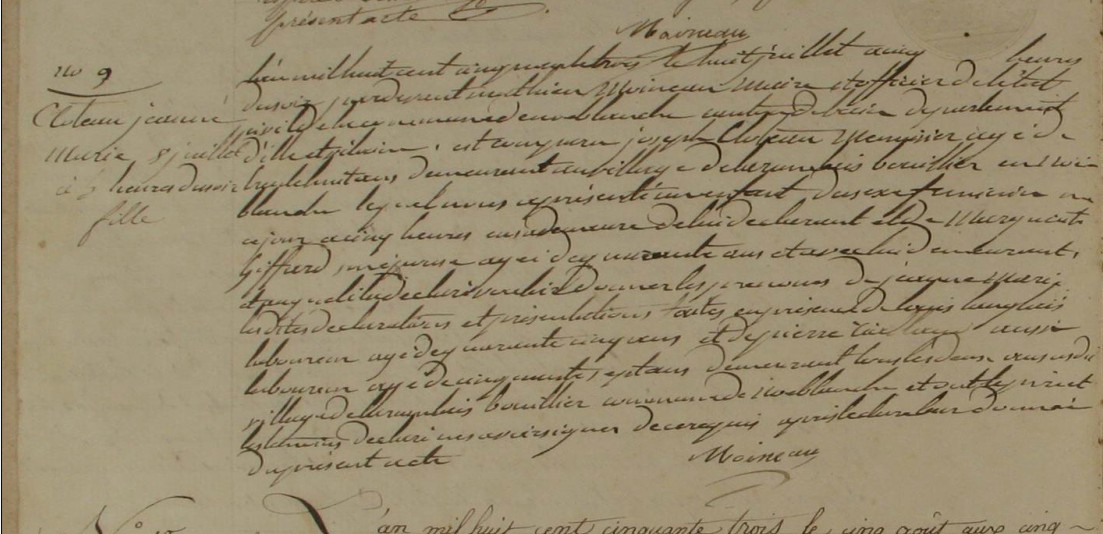 présent acte
Moineau
no 9
Cloteau jeanne
Marie, 8 juillet
à 5 heures du soir
fille
L'an mil huit cent cinquante trois le huit juillet cinq heures
du soir, par devant mathieu Moineau Maire et officier de l'état
civil de la commune d' blanche canton de département
d'ille et vilaine, est comparu joseph Cloteau Menuisier agé de
trente huit ans demeurant au village de bouillier en
blanche lequel nous a présenté un enfant du sexe feminin né
ce jour a cinq heures en sa demeure de lui declarant et de Marguerite
Giffard, son épouse agée de quarante ans et avec lui demeurant,
et auquel il a declaré vouloir donner les prenoms de jeanne Marie
les dites declarations et présentations faites en présence de Langlais
laboureur agé de quarante cinq ans et de pierre aussi
laboureur agé de cinquante sept ans demeurant tous les deux au susdit
village de bouillier commune d' blanche et ont le pere et
les témoins declaré ne savoir signer de ce requis après lecture a leur donnée
du présent acte
Moineau
L'an mil huit cent cinquante trois le cinq août aux cinq